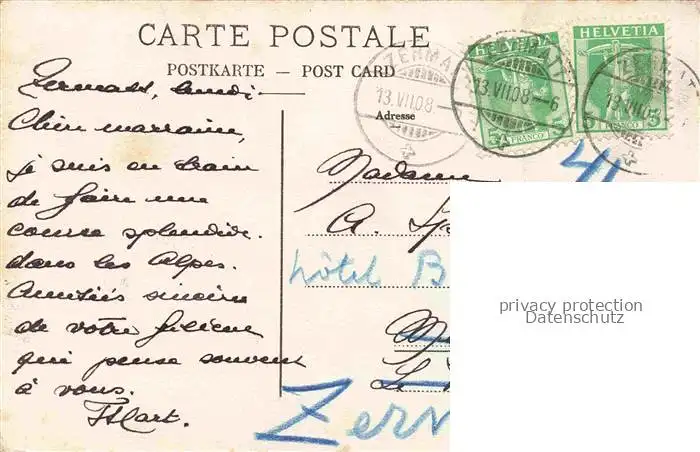 CARTE POSTALE
POSTKARTE — POST CARD
Adresse
HELVETIA
HELVETIA
FRANCO
FRANCO
5
5
ZERMATT
13.VII.08–6
13.VII.08
13.VII.08
Zermatt, lundi
Chère marraine,
je suis en train
de faire une
course splendide.
dans les Alpes.
Amitiés sincères
de votre filleul
qui pense souvent
à vous.
Madame
A.
hôtel B
Zer
privacy protection
Datenschutz